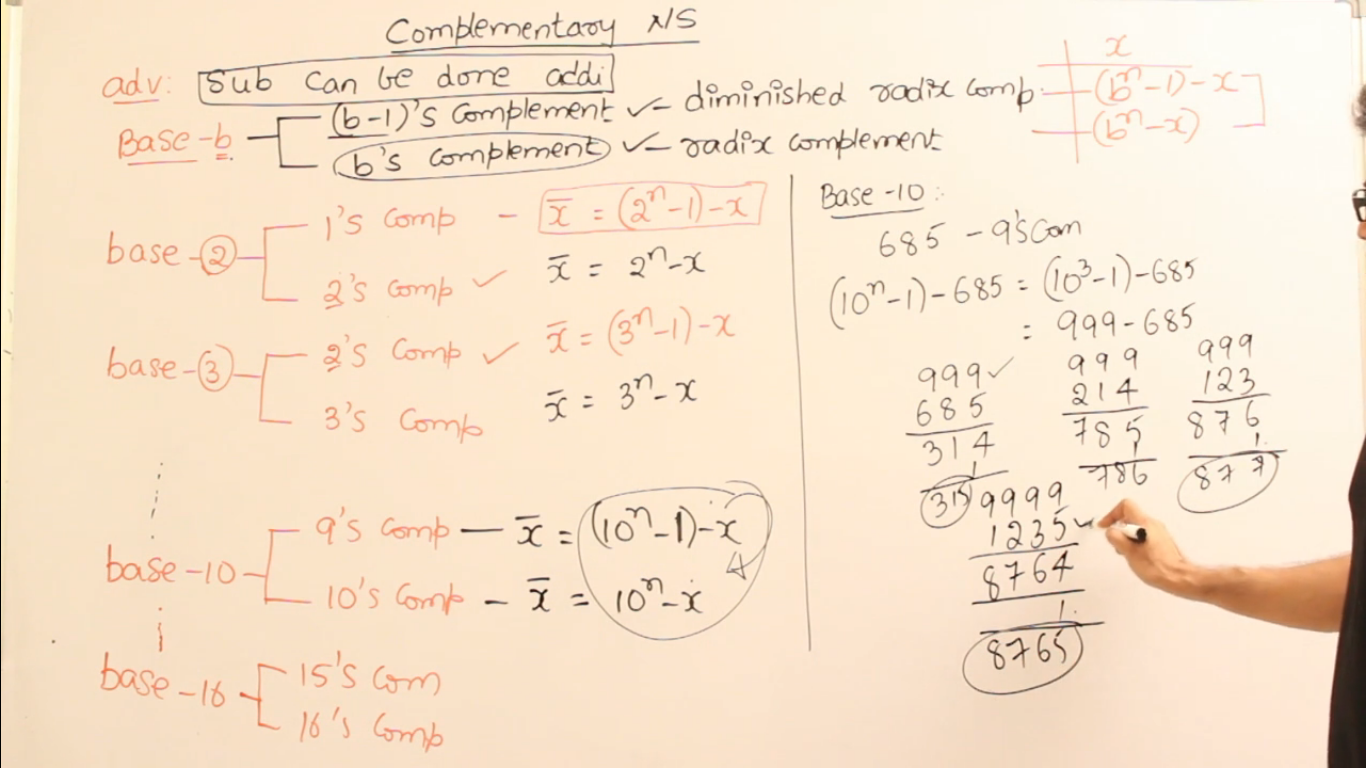 Complementary N/S
adv: Sub can be done addi
Base-b
(b-1)'s complement ✓ - diminished radix comp.
b's complement ✓ - radix complement
x
(bⁿ-1)-x
(bⁿ-x)
base-2
1's comp - x̄ = (2ⁿ-1)-x
2's comp ✓ x̄ = 2ⁿ-x
base-3
2's comp ✓ x̄ = (3ⁿ-1)-x
3's comp x̄ = 3ⁿ-x
base-10
9's comp - x̄ = (10ⁿ-1)-x
10's comp - x̄ = 10ⁿ-x
base-16
15's com
16's comp
Base-10:
685 - 9's com
(10ⁿ-1)-685 = (10³-1)-685
= 999-685
999 ✓
685
314
1
315
999
214
785
1
786
999
123
876
1.
877
9999
1235
8764
1.
8765